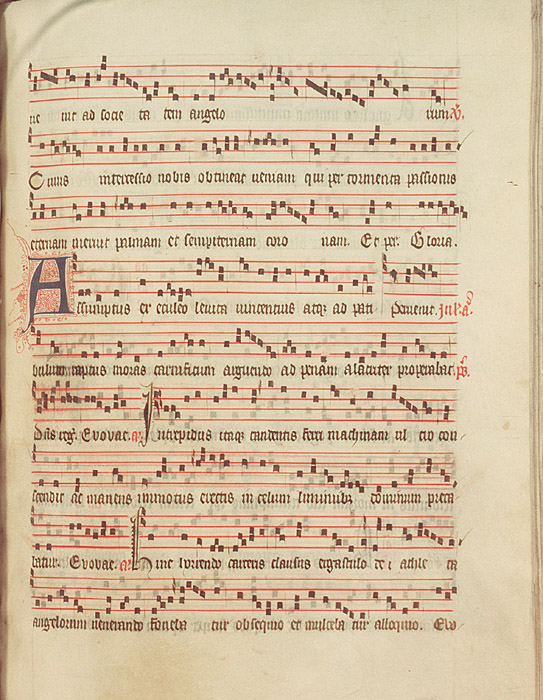 ne nir ad socie ta tem angelo rum. V.
Cuius intercessio nobis obtineat veniam qui per tormenta passionis
eternam meruit palmam et sempiternam coro nam. Et per. Gloria.
Assumptus ex eculeo levita vincentius atqz ad peni pervenit. in lau.
moras carnificum arguendo ad penam alacriter properabat. ps.
Dns reg. Evovae. a. Intrepidus itaqz candentis ferri machinam ul tro con
scendit ac manens immotus erectis in celum luminibz dominum preca
batur. Evovae. a. Hinc lurendo carceris clausus ergastulo de i athle ta
angelorum venerando foveba tur obsequio et mulceba tur alloquio. Evo